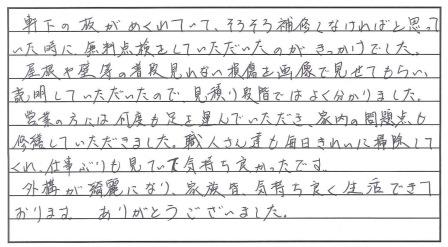 軒下の板がめくれていて、そろそろ補修しなければと思って
いた時に、無料点検をしていただいたのがきっかけでした。
屋根や壁等の普段見れない損傷を画像で見せてもらい、
説明していただいたので、見積り段階ではよく分かりました。
営業の方には何度も足を運んでいただき、家内の問題点も
修繕していただきました。職人さん達も毎日きれいに掃除して
くれ、仕事ぶりも見ていて気持ち良かったです。
外構が綺麗になり、家族皆、気持ち良く生活できて
おります。ありがとうございました。